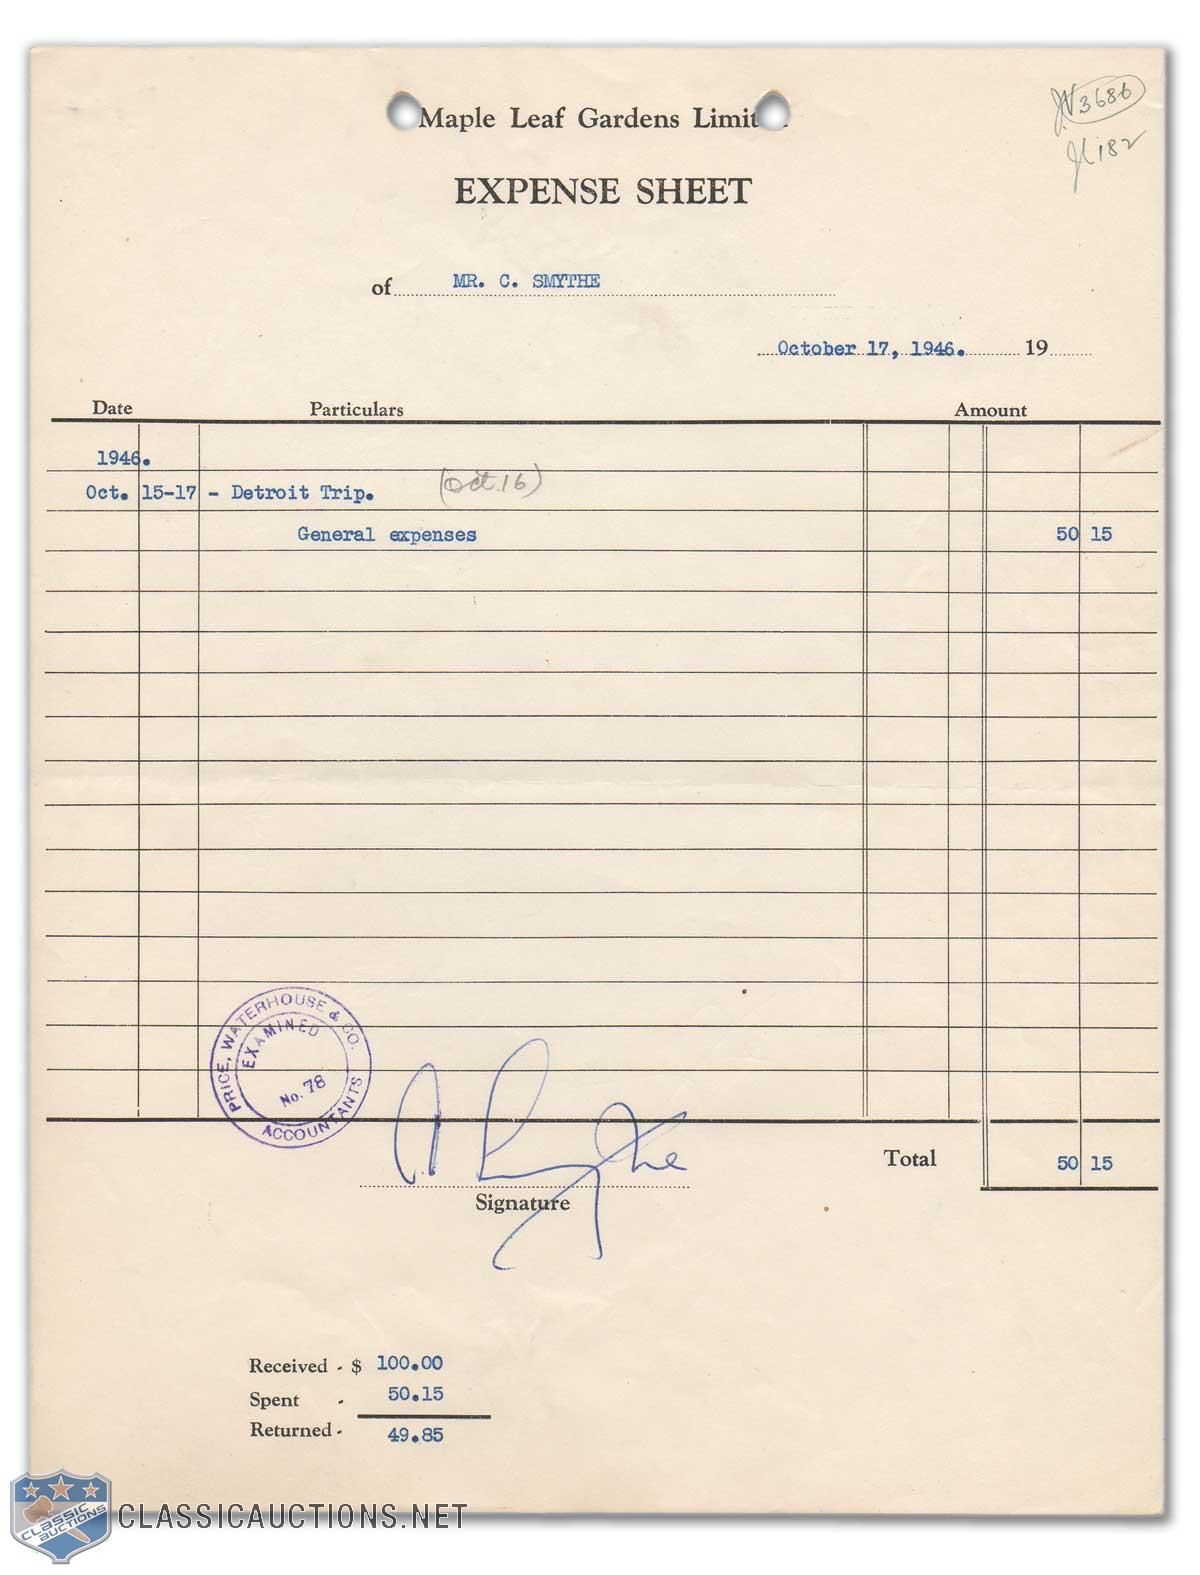 Maple Leaf Gardens Limit
JV 3686
182
EXPENSE SHEET
of MR. C. SMYTHE
October 17, 1946. 19
Date Particulars Amount
1946.
Oct. 15-17 - Detroit Trip. (Oct. 16)
General expenses 50 15
PRICE, WATERHOUSE & CO.
EXAMINED
No. 78
ACCOUNTANTS
Total 50 15
Signature
Received - $ 100.00
Spent - 50.15
Returned - 49.85
CLASSIC AUCTIONS
CLASSICAUCTIONS.NET